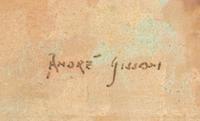 ANDRÉ GISSON